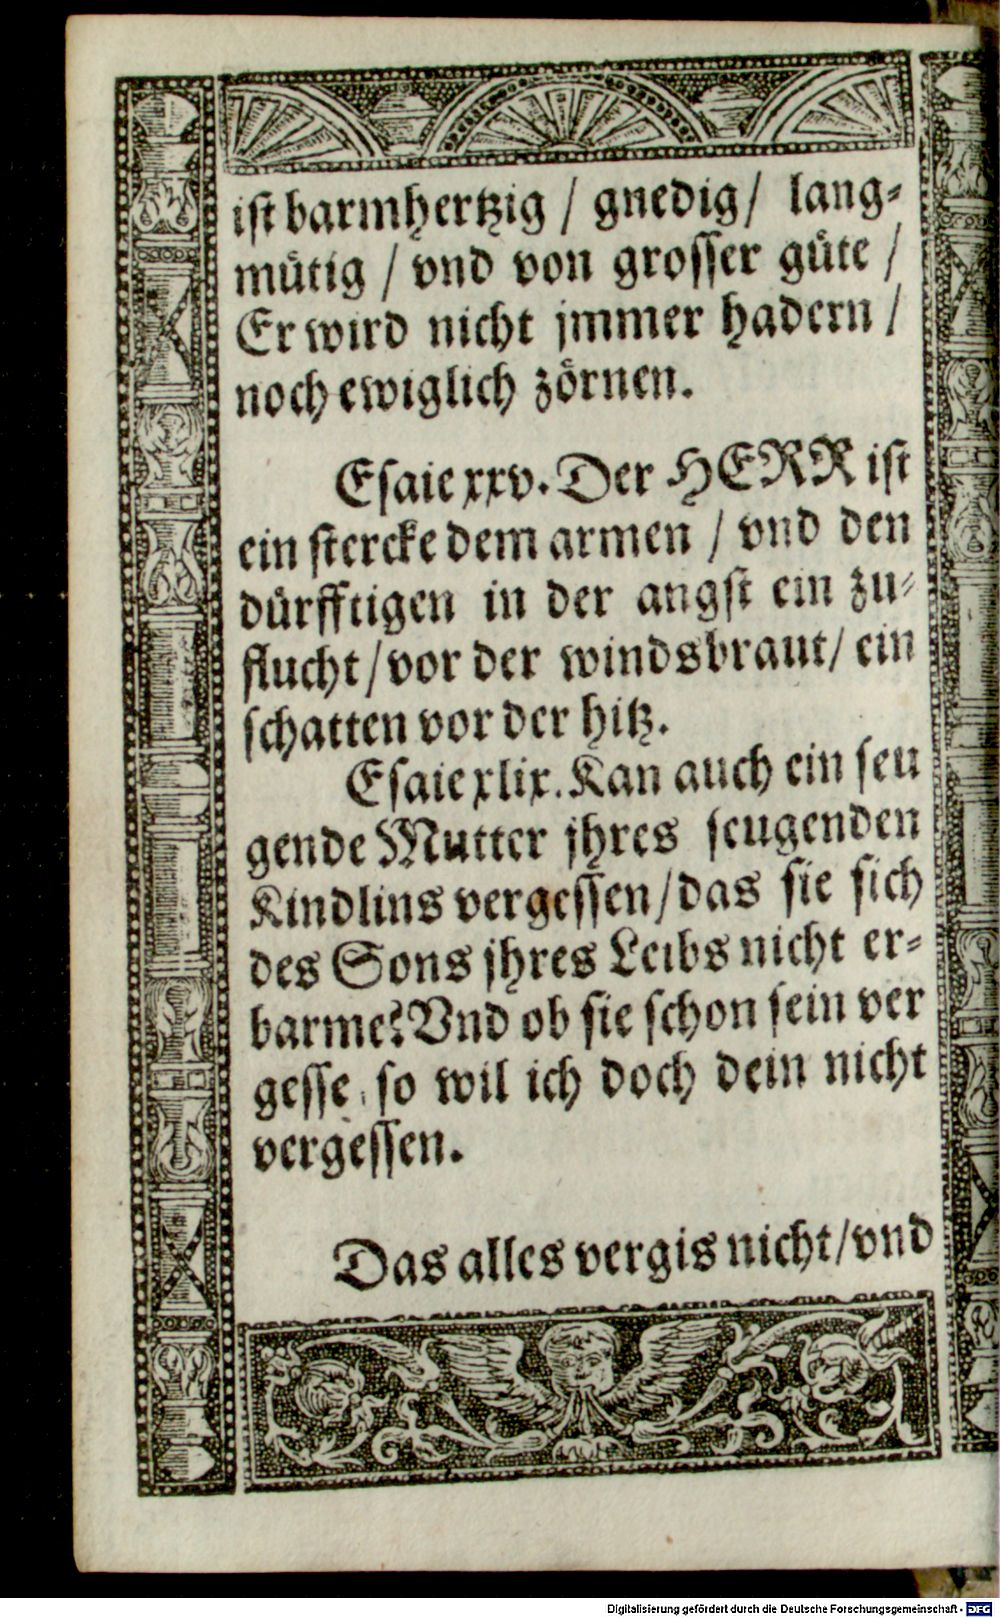 ist barmhertzig / gnedig / lang⸗
mütig / vnd von grosser güte /
Er wird nicht jmmer hadern /
noch ewiglich zörnen.
Esaie xxv. Der HERR ist
ein stercke dem armen / vnd den
dürfftigen in der angst ein zu⸗
flucht / vor der windsbraut / ein
schatten vor der hitz.
Esaie xlix. Kan auch ein seu
gende Mutter jhres seugenden
Kindlins vergessen / das sie sich
des Sons jhres Leibs nicht er⸗
barme? Vnd ob sie schon sein ver
gesse, so wil ich doch dein nicht
vergessen.
Das alles vergis nicht / vnd
Digitalisierung gefördert durch die Deutsche Forschungsgemeinschaft - DFG